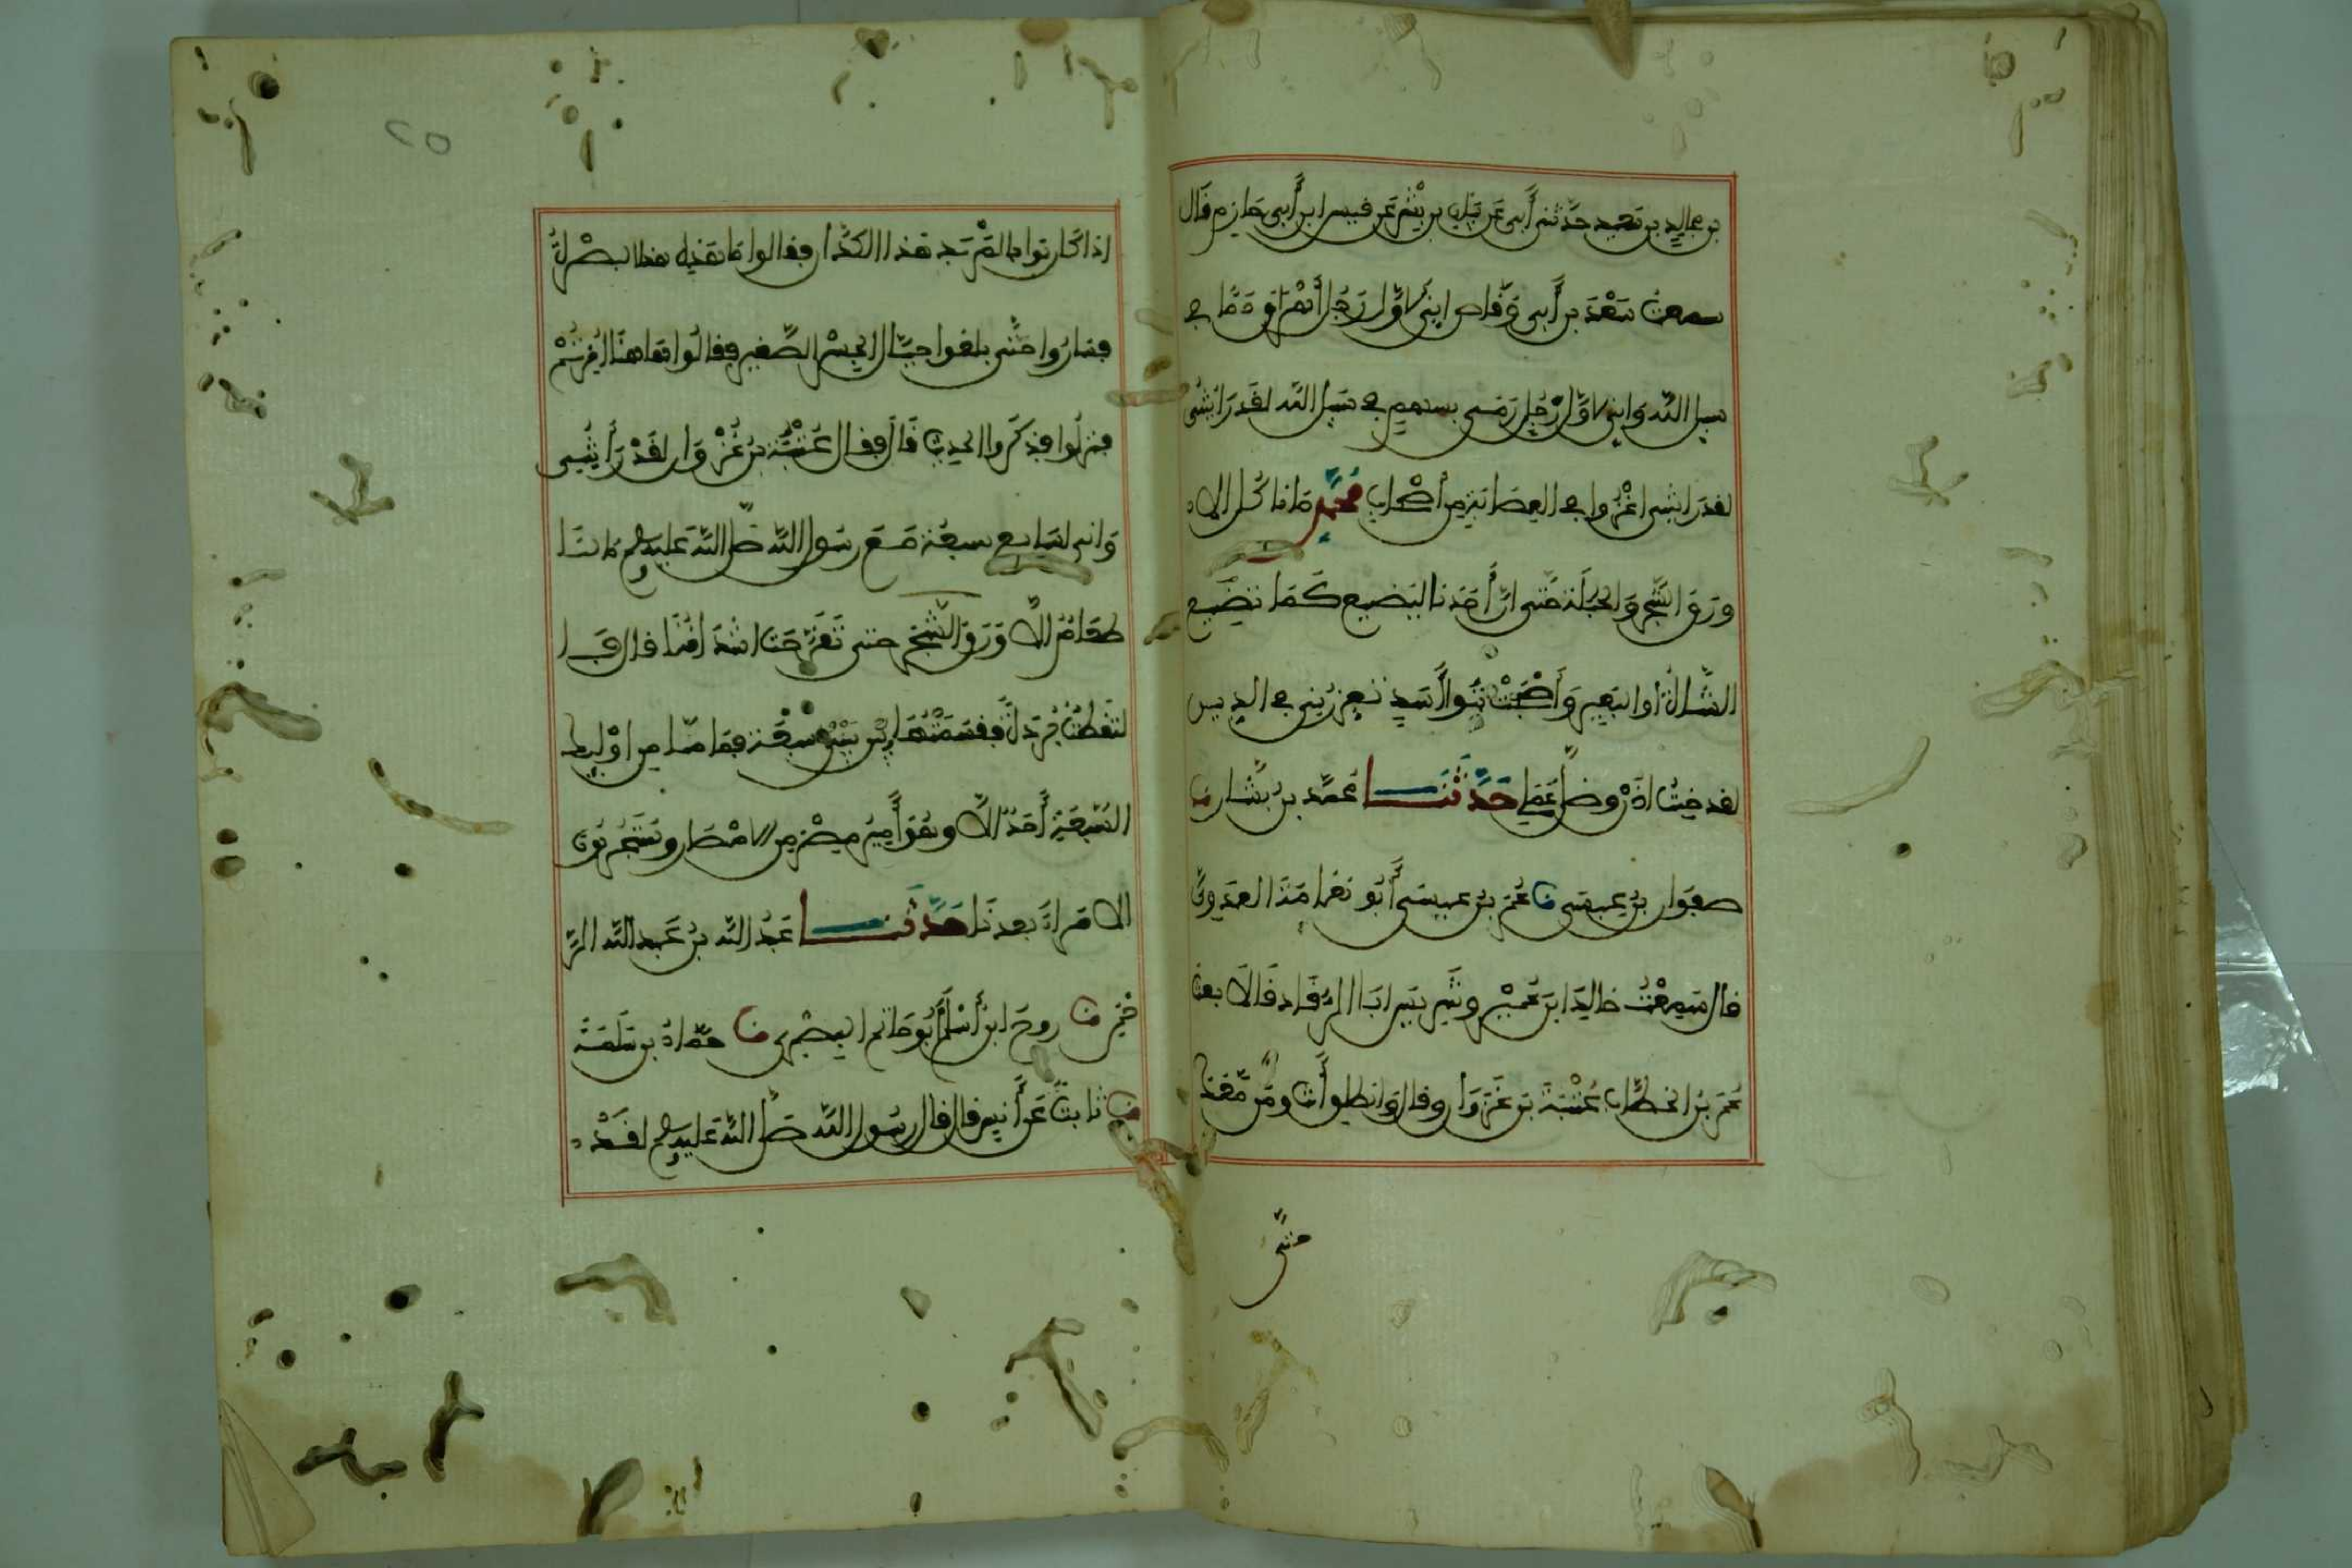 بن مجالد بن سعيد حدثني أبي عن بيان بن بشر عن قيس ابن أبي حازم قال
سمعت سعد بن أبي وقاص إني لأول رجل أهراق دما في
سبيل الله وإني لأول رجل رمى بسهم في سبيل الله لقد رايتني
لقد رايتني اغزوا في العصابة من أصحاب محمد ما ناكل الا
ورق الشجر والحبلة حتى ان أحدنا ليضع كما تضع
الشاة او البعير وأصبحت بنوا أسد تعزرني في الدين
لقد خبت اذ وضل عملي حدثنا محمد بن بشار نا
صفوان بن عيسى نا عمر بن عيسى أبو نعامة العدوي
قال سمعت خالد ابن عمير وشويسا ابا الرقاد قالا بعث
عمر بن الخطاب عتبة بن غزوان وقال انطلق أنت ومن معك
حتى
٢٥
اذا كانوا بالمربد وجدوا هذا الكذان فقالوا ما هذه هذه البصرة
فساروا حتى بلغوا حيال الجسر الصغير فقالوا هاهنا امرتم
فنزلوا فذكروا الحديث قال فقال عتبة بن غزوان لقد رأيتني
واني لسابع سبعة مع رسول الله صلى الله عليه وسلم ما لنا
طعام الا ورق الشجر حتى تقرحت اشداقنا قال
التقطت بردة فقسمتها بيني وبين سبعة فما منا من اوليك
السبعة أحد الا وهو أمير مصر من الامصار وستجربون
الامراء بعدنا حدثنا عبد الله بن عبد الرَّ
حمن نا روح ابن أسلم أبو حاتم البصري نا حماد بن سلمة
نا ثابت عن أنس قال قال رسول الله صلى الله عليه وسلم لقد